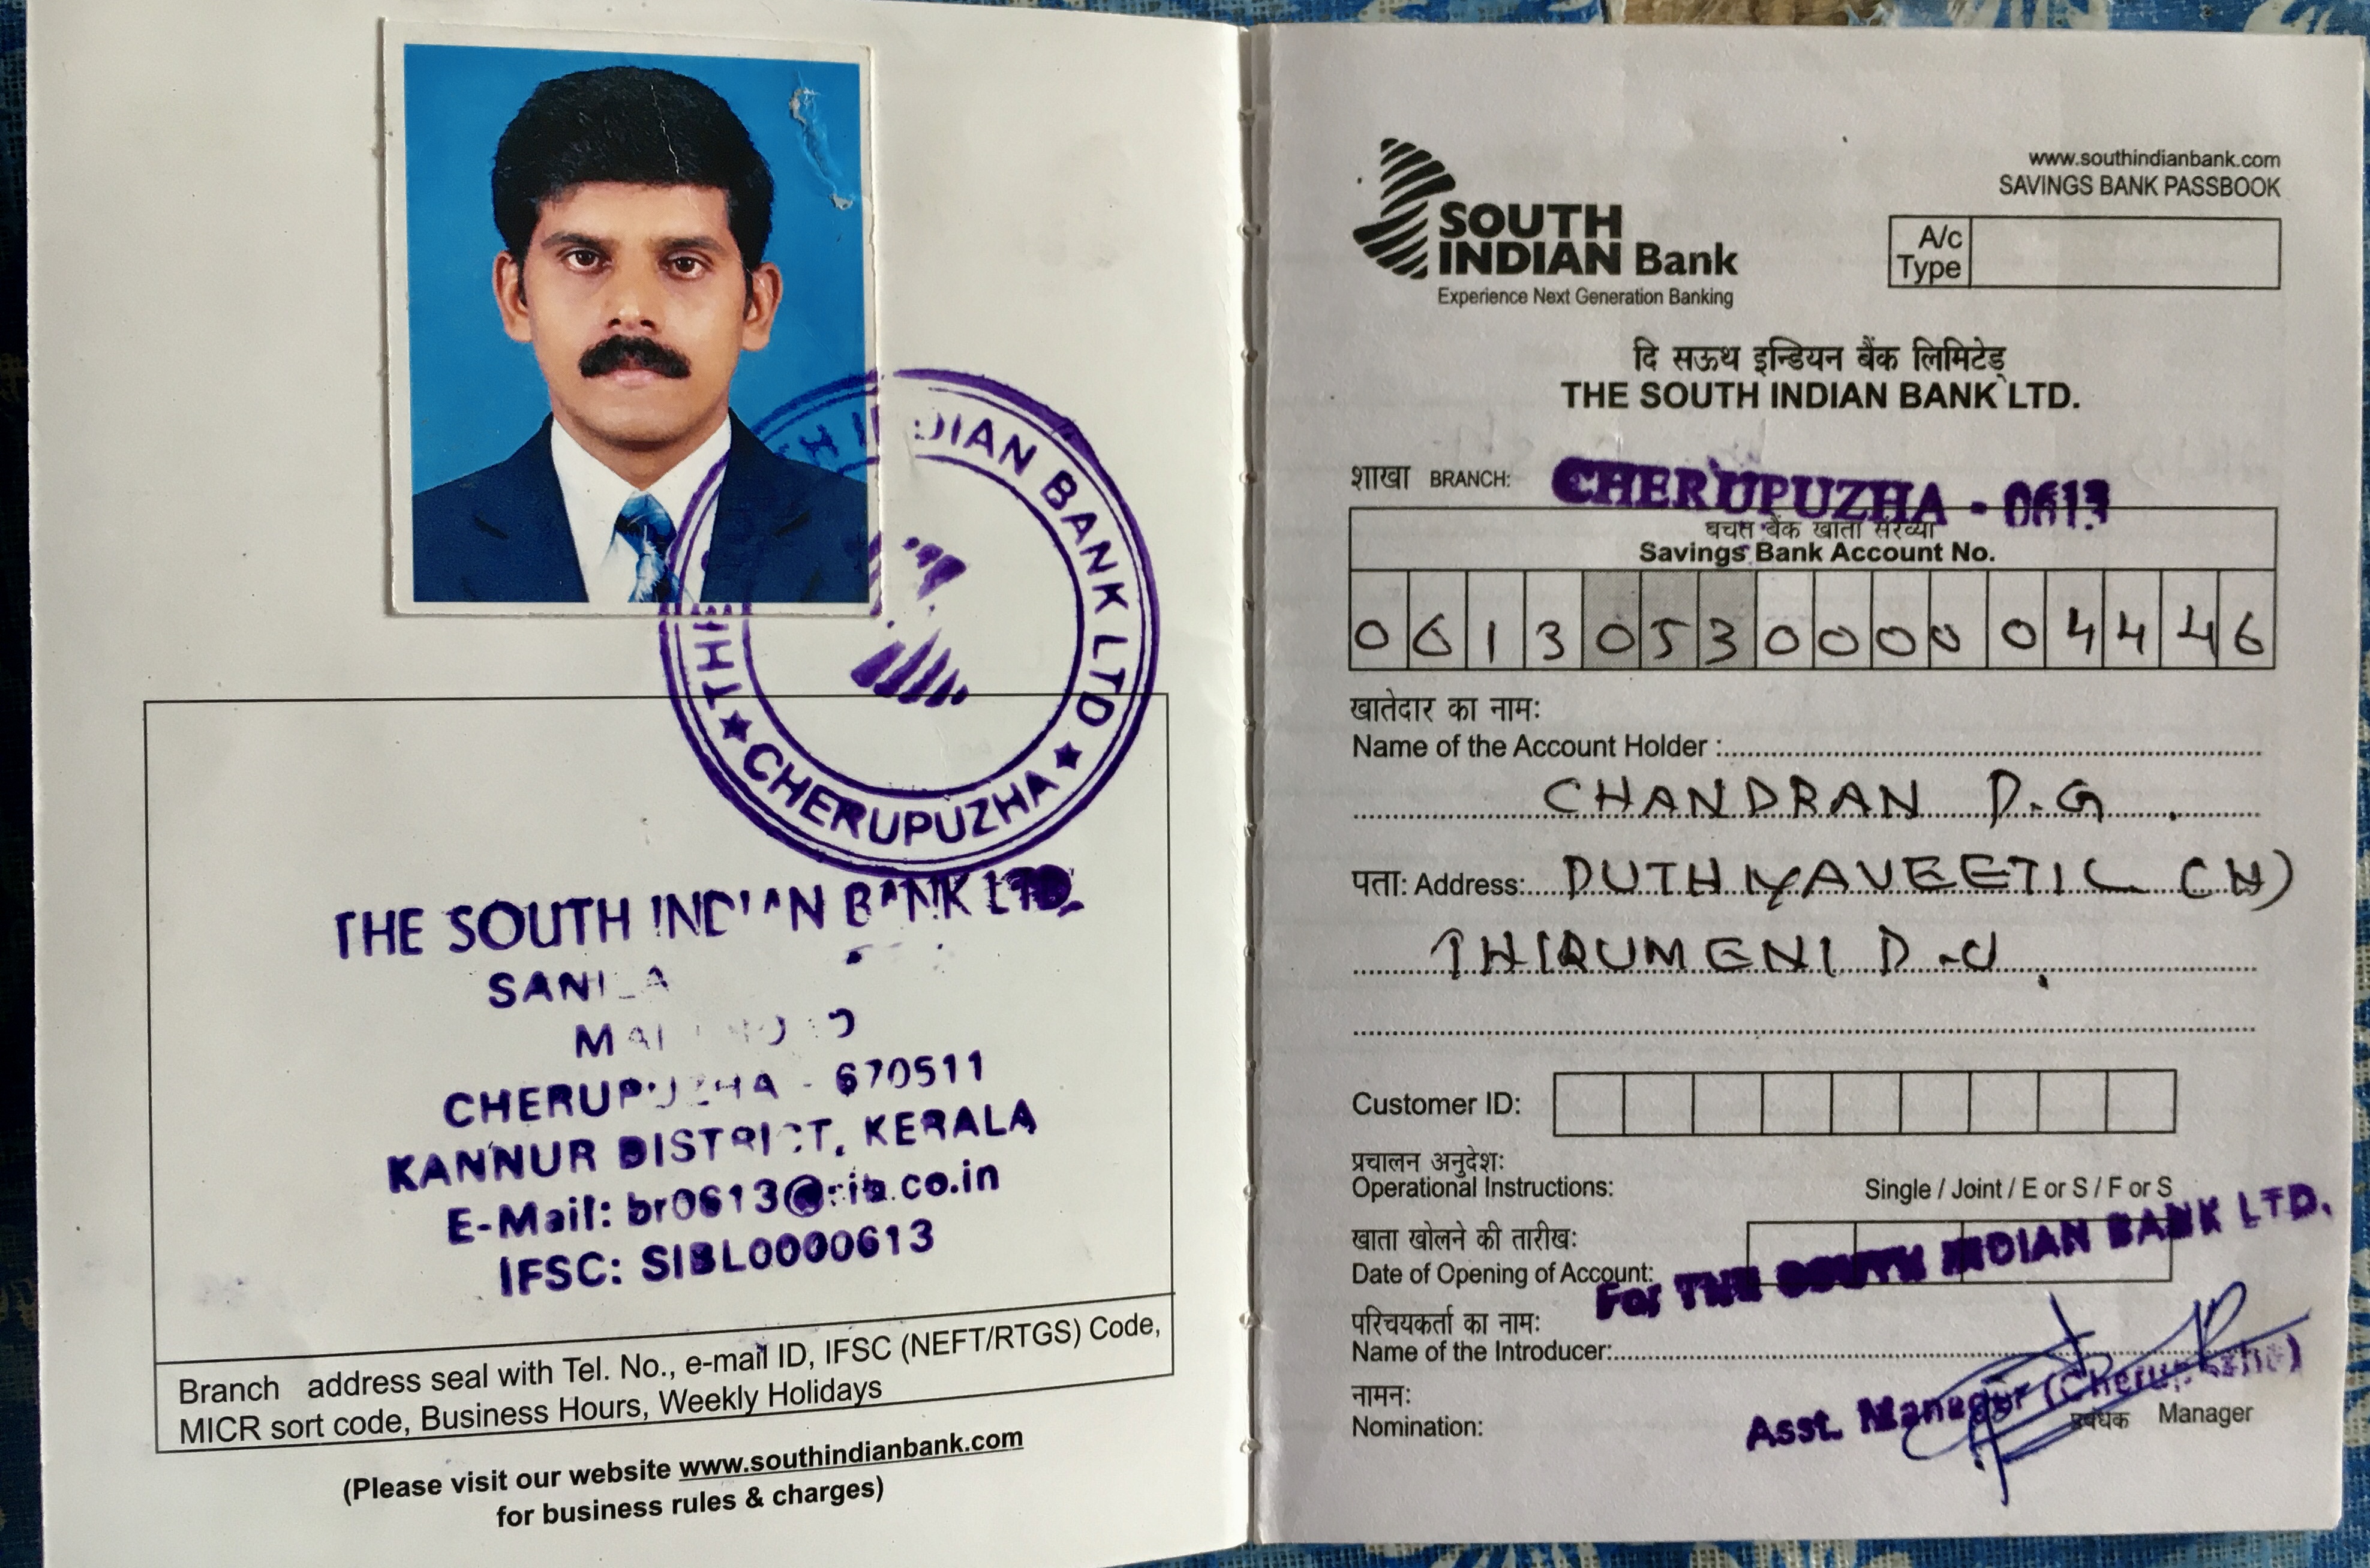 THE SOUTH INDIAN BANK LTD
★ CHERUPUZHA ★
THE SOUTH INDIAN BANK LTD.
CHERUPUZHA - 670511
KANNUR DISTRICT, KERALA
E-Mail: br0613@sib.co.in
IFSC: SIBL0000613
Branch address seal with Tel. No., e-mail ID, IFSC (NEFT/RTGS) Code,
MICR sort code, Business Hours, Weekly Holidays
(Please visit our website www.southindianbank.com
for business rules & charges)
www.southindianbank.com
SAVINGS BANK PASSBOOK
SOUTH
INDIAN Bank
Experience Next Generation Banking
A/c
Type
दि सऊथ इन्डियन बैंक लिमिटेड्
THE SOUTH INDIAN BANK LTD.
शाखा BRANCH: CHERUPUZHA - 0613
बचत बैंक खाता संख्या
Savings Bank Account No.
0 6 1 3 0 5 3 0 0 0 0 0 4 4 4 6
खातेदार का नाम:
Name of the Account Holder :
CHANDRAN P.G.
पता: Address: PUTHIYAVEETIL (H)
THIRUMENI P.O.
Customer ID:
प्रचालन अनुदेश:
Operational Instructions: Single / Joint / E or S / F or S
खाता खोलने की तारीख:
Date of Opening of Account:
For THE SOUTH INDIAN BANK LTD.
परिचयकर्ता का नाम:
Name of the Introducer:
नामन:
Nomination:
Asst. Manager (Cherupuzha)
प्रबंधक Manager